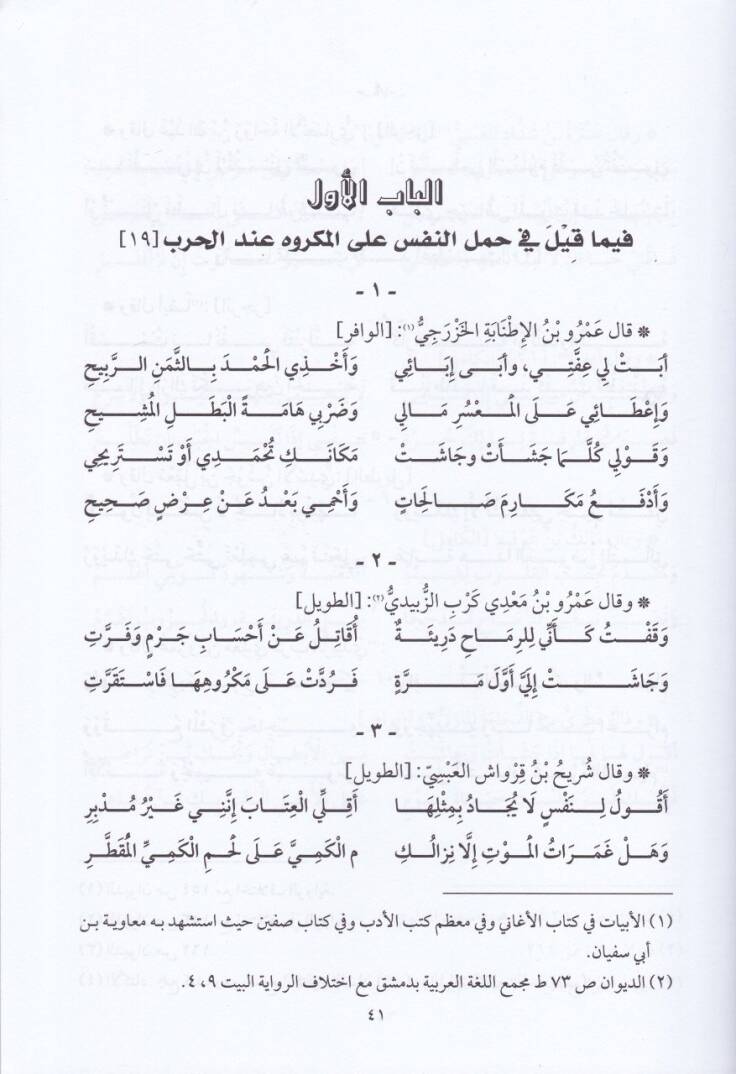 الباب الأول
فيما قِيْلَ في حمل النفس على المكروه عند الحرب [١٩]
- ١ -
* قال عَمْرُو بْنُ الإِطْنَابَةِ الخَزْرَجِيُّ(١): [الوافر]
أبَتْ لِي عِفَّتِي، وأبَى إبَائِي وَأَخْذِي الحَمْدَ بِالثَّمَنِ الرَّبِيحِ
وَإِعْطَائِي عَلَى المُعْسُرِ مَالِي وَضَرْبِي هَامَةً البَطَلِ المُشِيحِ
وَقَوْلِي كُلَّمَا جَشَأَتْ وجَاشَتْ مَكَانَكِ تُحْمَدِي أوْ تَسْتَرِيحِي
وَأَدْفَعُ مَكَارِمَ صَالِحَاتٍ وَأَحْمِي بَعْدُ عَنْ عِرْضٍ صَحِيحِ
- ٢ -
* وقال عَمْرُو بْنُ مَعْدِي كَرْبِ الزُّبيديُّ(٢): [الطويل]
وَقَفْتُ كَأنِّي لِلرِمَاحِ دَرِيئَةٌ أُقَاتِلُ عَنْ أَحْسَابِ جَرْمٍ وَفَرَّتِ
وَجَاشَتْ إلَيَّ أوَّلَ مَرَّةٍ فَرُدَّتْ عَلَى مَكْرُوهِهَا فَاسْتَقَرَّتِ
- ٣ -
* وقال شُرِيحُ بْنُ قِرْواش العَبْسِيّ: [الطويل]
أَقُولُ لِنَفْسٍ لَا يُجَادُ بِمِثْلِهَا أَقِلِّي العِتَابَ إنَّنِي غَيْرُ مُدْبِرِ
وَهَلْ غَمَرَاتُ المُوْتِ إلَّا نِزَالُكِ م الْكَمِيَّ عَلَى لَحْمِ الْكَمِيِّ المُقَطَّرِ
(١) الأبيات في كتاب الأغاني وفي معظم كتب الأدب وفي كتاب صفين حيث استشهد به معاوية بن
أبي سفيان.
(٢) الديوان ص ٧٣ ط مجمع اللغة العربية بدمشق مع اختلاف الرواية البيت ٩، ٤.
٤١